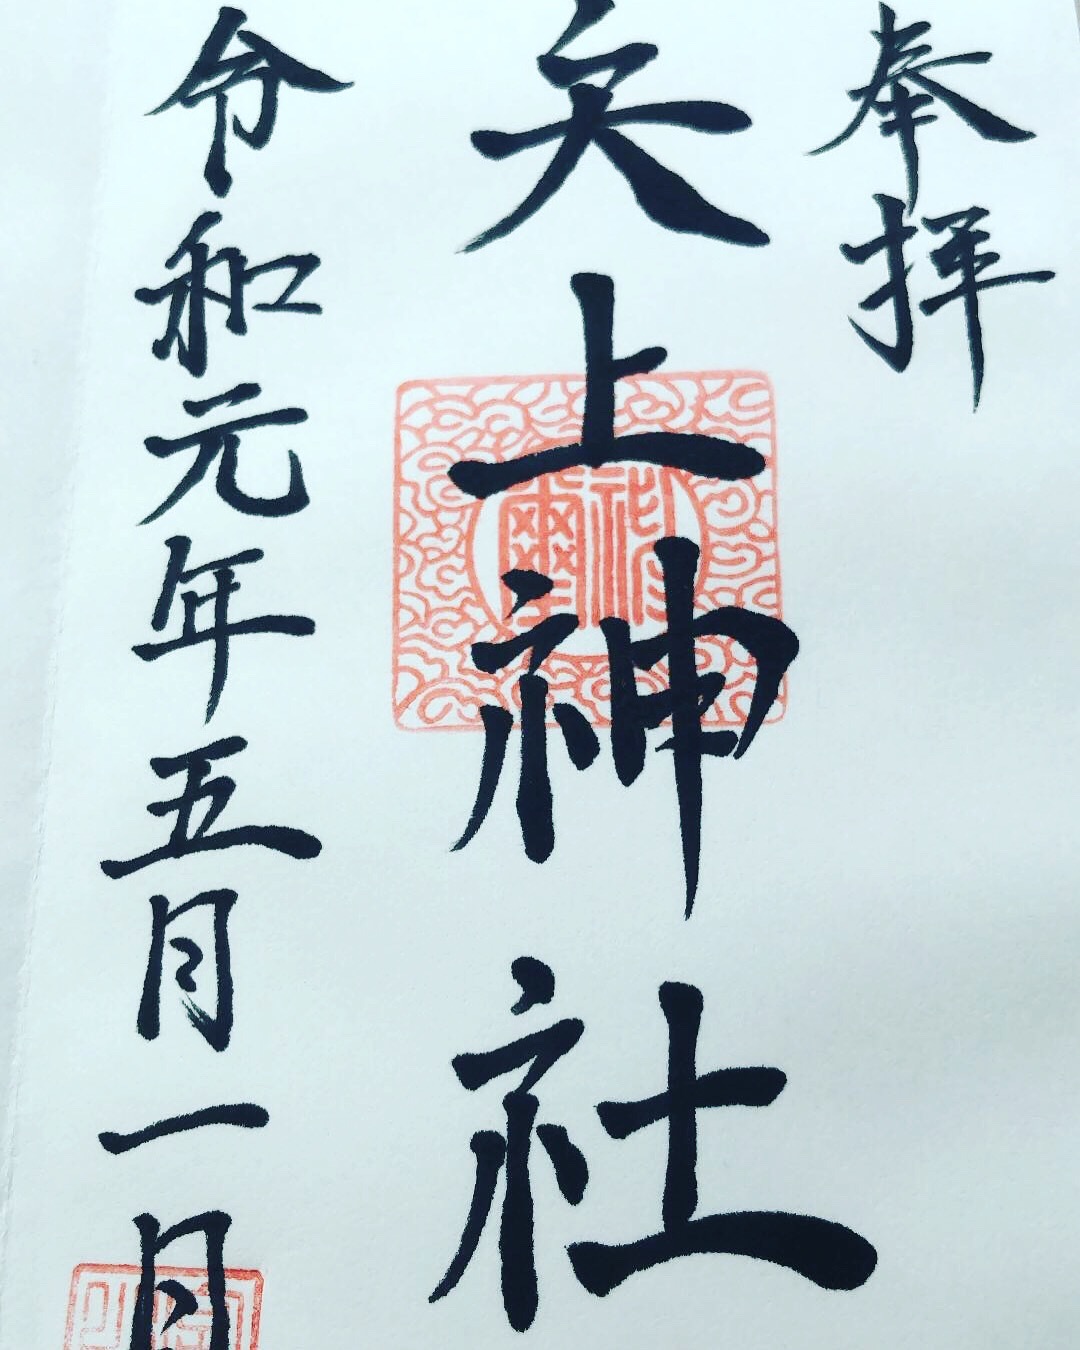 奉拝
矢上神社
令和元年五月一日